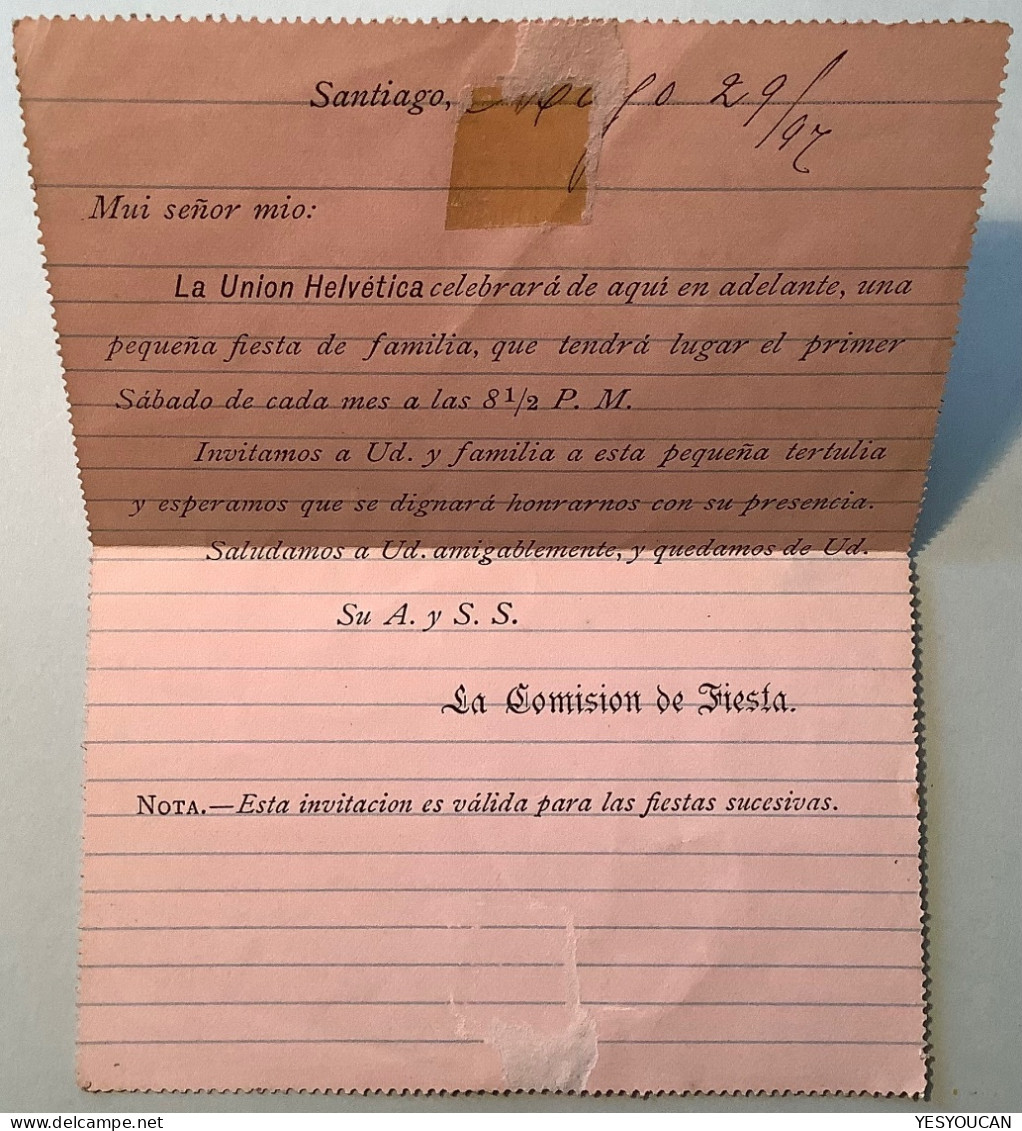 Santiago, 29/97
Mui señor mio:
La Union Helvética celebrará de aquí en adelante, una
pequeña fiesta de familia, que tendrá lugar el primer
Sábado de cada mes a las 8 1/2 P. M.
Invitamos a Ud. y familia a esta pequeña tertulia
y esperamos que se dignará honrarnos con su presencia.
Saludamos a Ud. amigablemente, y quedamos de Ud.
Su A. y S. S.
La Comision de Fiesta.
NOTA.—Esta invitacion es válida para las fiestas sucesivas.
YESYOUCAN